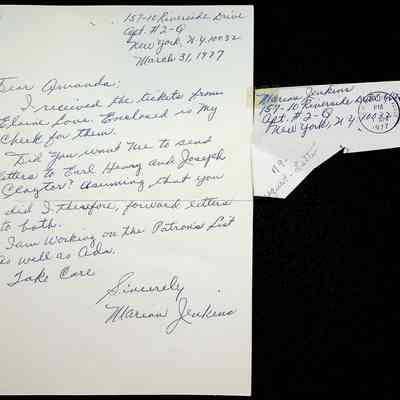 157-10 Riverside Drive
Apt. #2-G
New York, N.Y. 10032
March 31, 1977
Dear Amanda:
I received the tickets from
Elaine Love. Enclosed is my
Check for them.
Did you want me to send
letters to Earl Henry and Joseph
Clayter? Assuming that you
did I therefore, forward letters
to both.
I am working on the Patrons List
as well as Ads.
Take Care
Sincerely
Marian Jenkins
Marian Jenkins
157-10 Riverside
Apt. #2-G
New York, N.Y. 10032
PM
1977